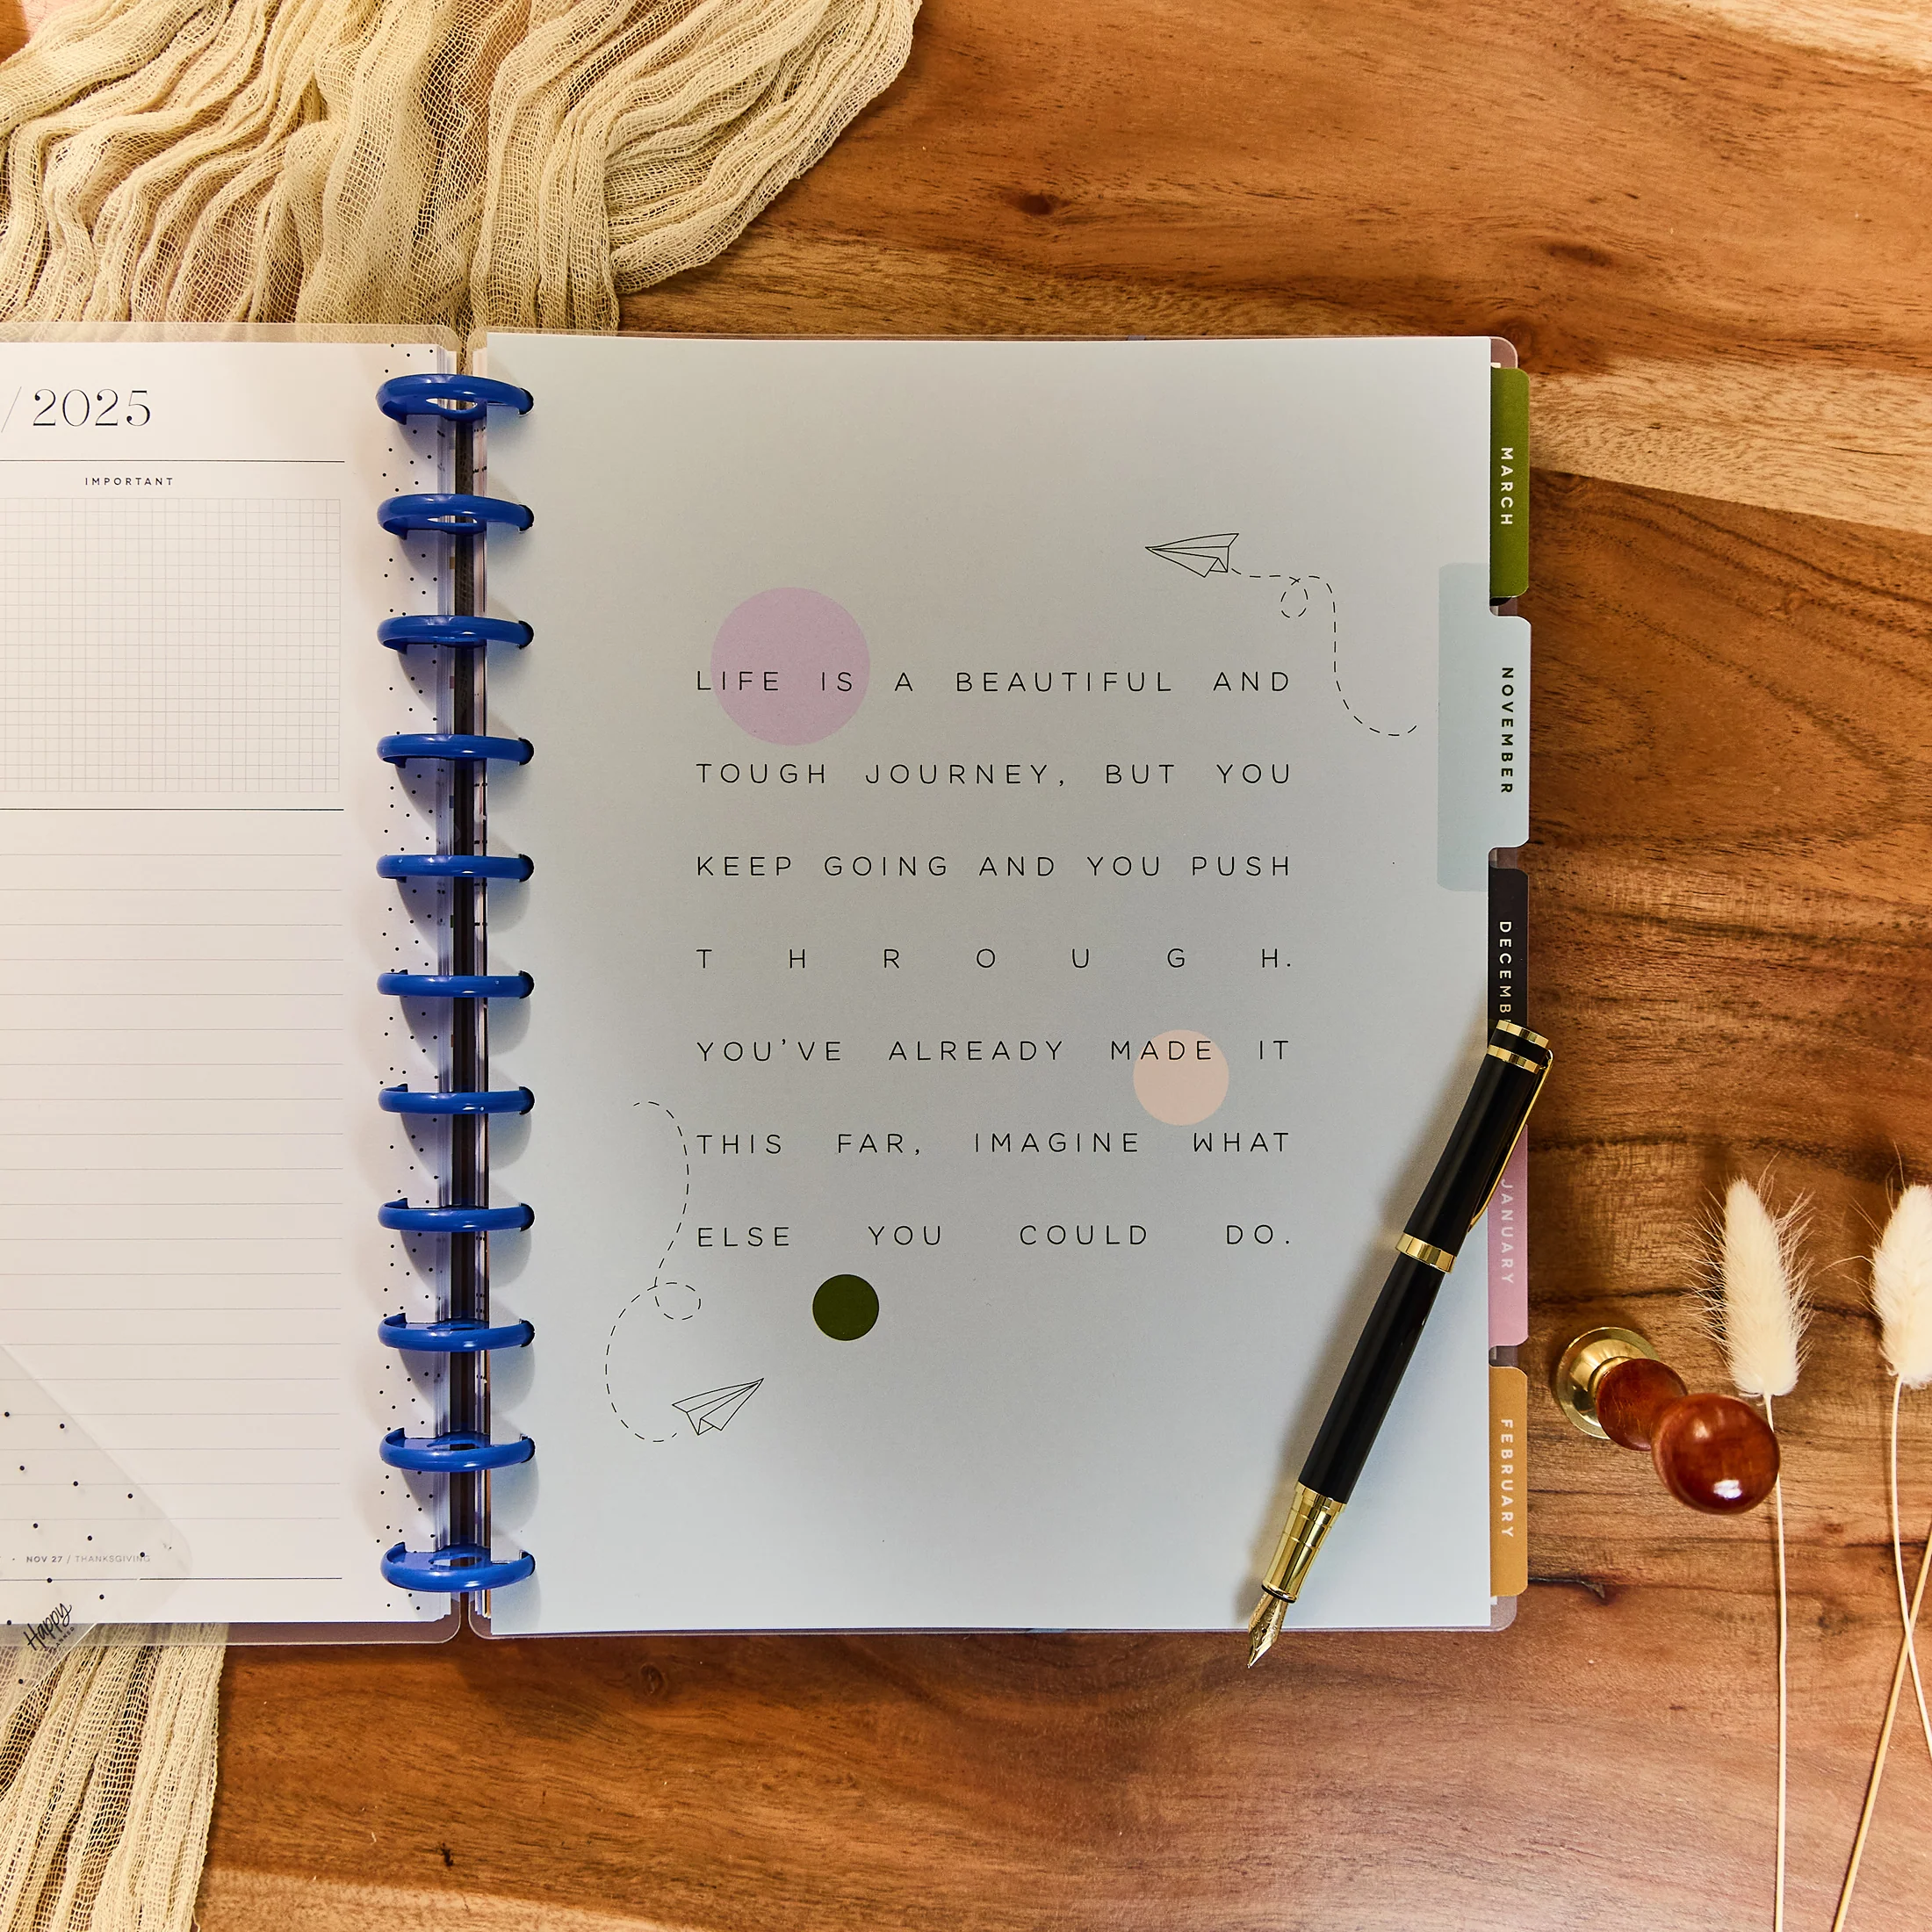 / 2025
IMPORTANT
NOV 27 / THANKSGIVING
Happy
PLANNER
LIFE IS A BEAUTIFUL AND
TOUGH JOURNEY, BUT YOU
KEEP GOING AND YOU PUSH
THROUGH.
YOU'VE ALREADY MADE IT
THIS FAR, IMAGINE WHAT
ELSE YOU COULD DO.
MARCH
NOVEMBER
DECEMB
JANUARY
FEBRUARY